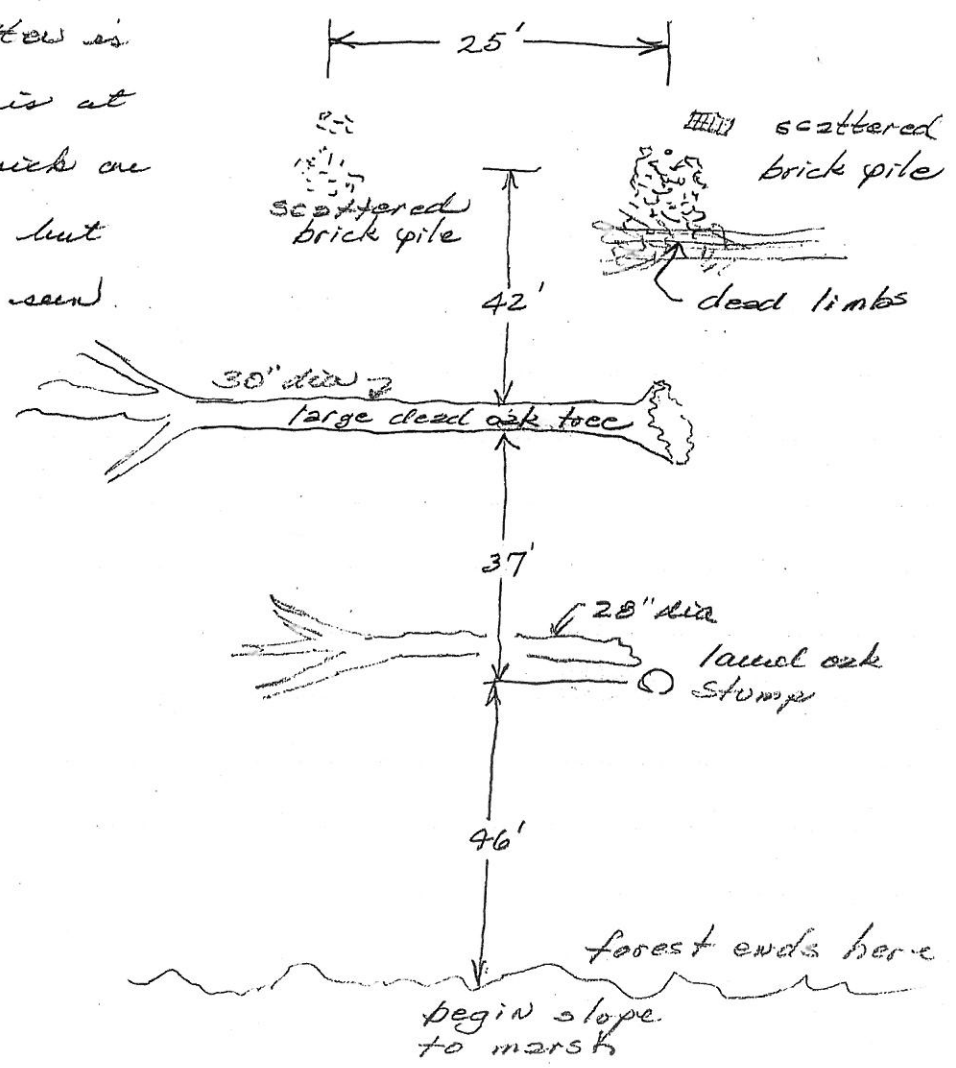 25'
is
is at
on
but
seen
scattered
brick pile
scattered
brick pile
dead limbs
42'
30" dia
large dead oak tree
37'
28" dia
laurel oak
stump
46'
forest ends here
begin slope
to marsh